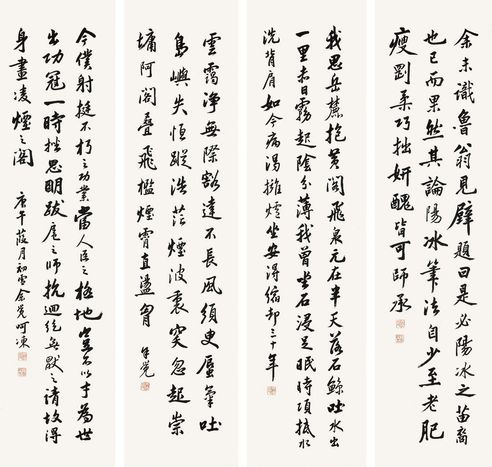 余未識魯翁見壁題曰是必陽冰之苗裔
也已而果然其論陽冰筆法自少至老肥
瘦剛柔巧拙妍醜皆可師承
我思岳麓抱黃閣飛泉元在半天落石鯨吐水出
一里赤日霧起陰分薄我曾坐石浸足眠時項抵水
洗背肩如今病渴擁爐坐安得縮卻三十年
雲靄淨無際豁達不長風須臾蜃氣吐
島嶼失恒蹤浩茫煙波裏突忽起崇
墉阿閣疊飛檻煙霄直盪胷 余覺
今僕射挺不朽之功業當人臣之極地豈不以才為世
出功冠一時挫思明跋扈之師抗迴紇無厭之請故得
身畫凌煙之閣 庚午葭月初雪余覺呵凍